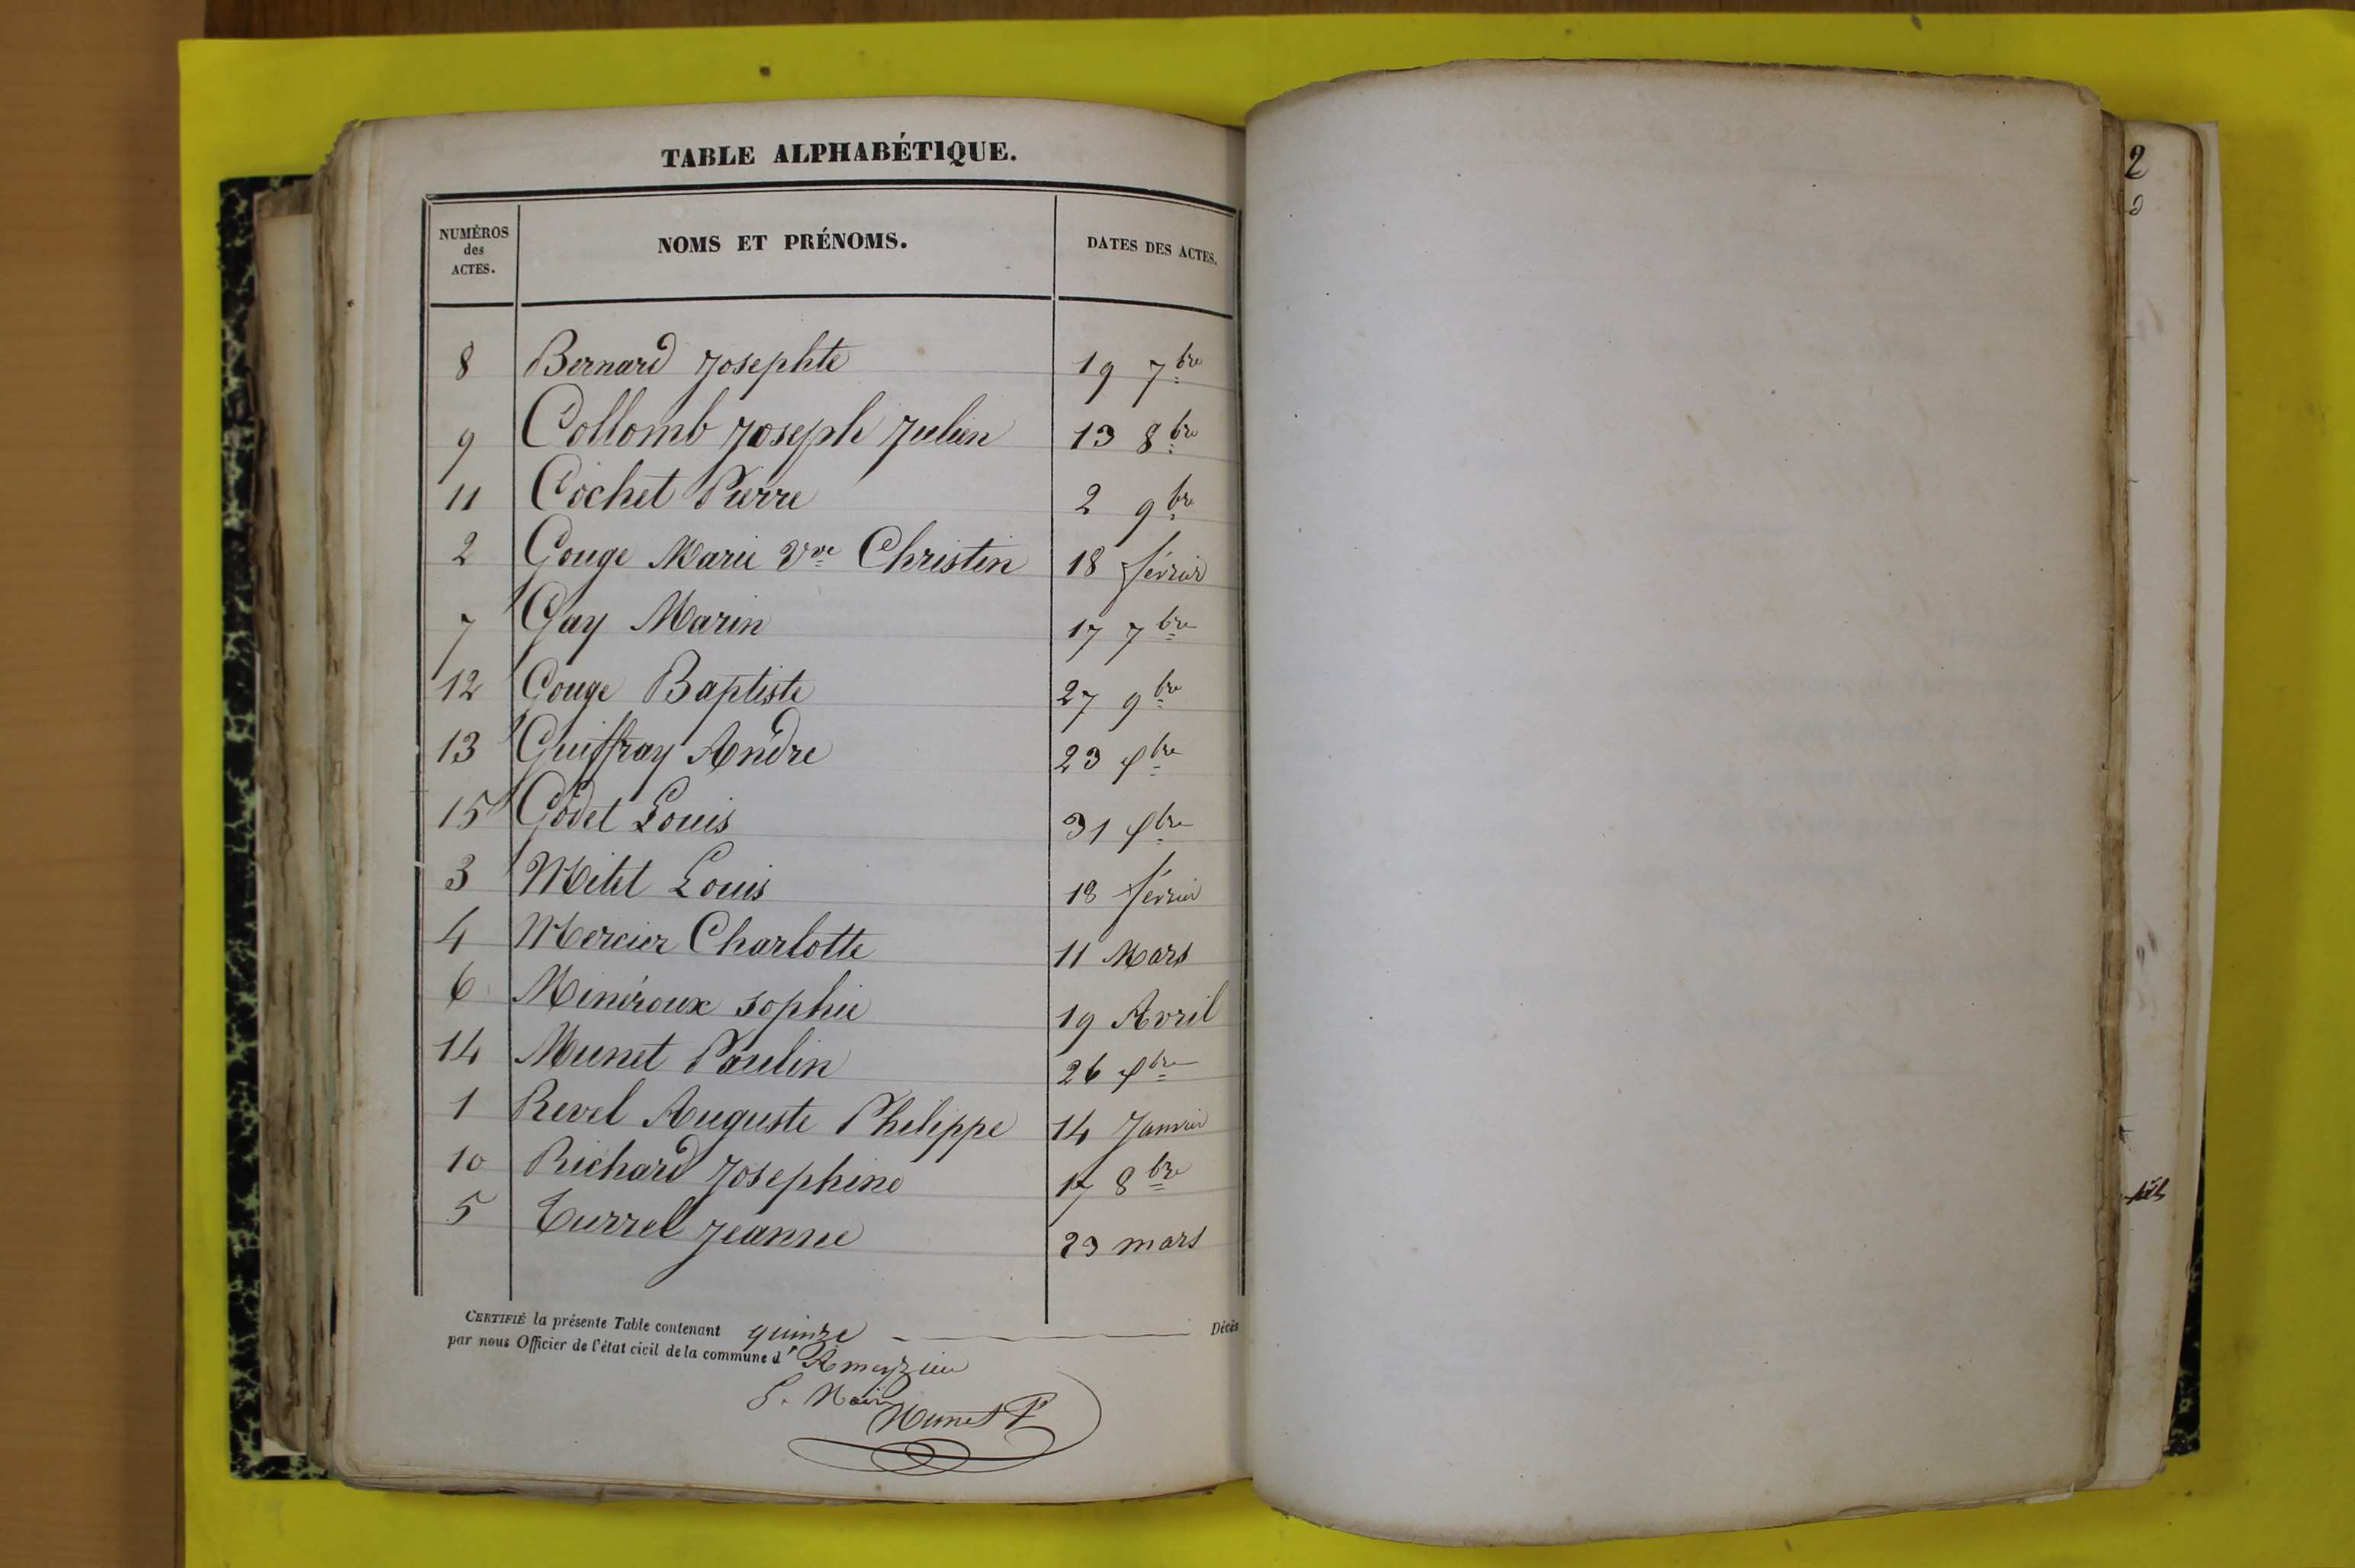 TABLE ALPHABÉTIQUE.
NUMÉROS des ACTES. NOMS ET PRÉNOMS. DATES DES ACTES.
8 Bernard Josephte 19 7bre
9 Collomb Joseph Julien 13 8bre
11 Cochet Pierre 2 9bre
2 Gouge Marie Vve Christin 18 février
7 Gay Marin 17 7bre
12 Gouge Baptiste 27 9bre
13 Guiffray André 23 xbre
15 Godet Louis 31 xbre
3 Milet Louis 18 février
4 Mercier Charlotte 11 Mars
6 Minéroux Sophie 19 Avril
14 Munet Paulin 26 xbre
1 Revel Auguste Philippe 14 Janvier
10 Richard Josephine 17 8bre
5 Turrel Jeanne 23 mars
CERTIFIÉ la présente Table contenant quinze Décès
par nous Officier de l'état civil de la commune d' Ameyzieu
Munet P
2